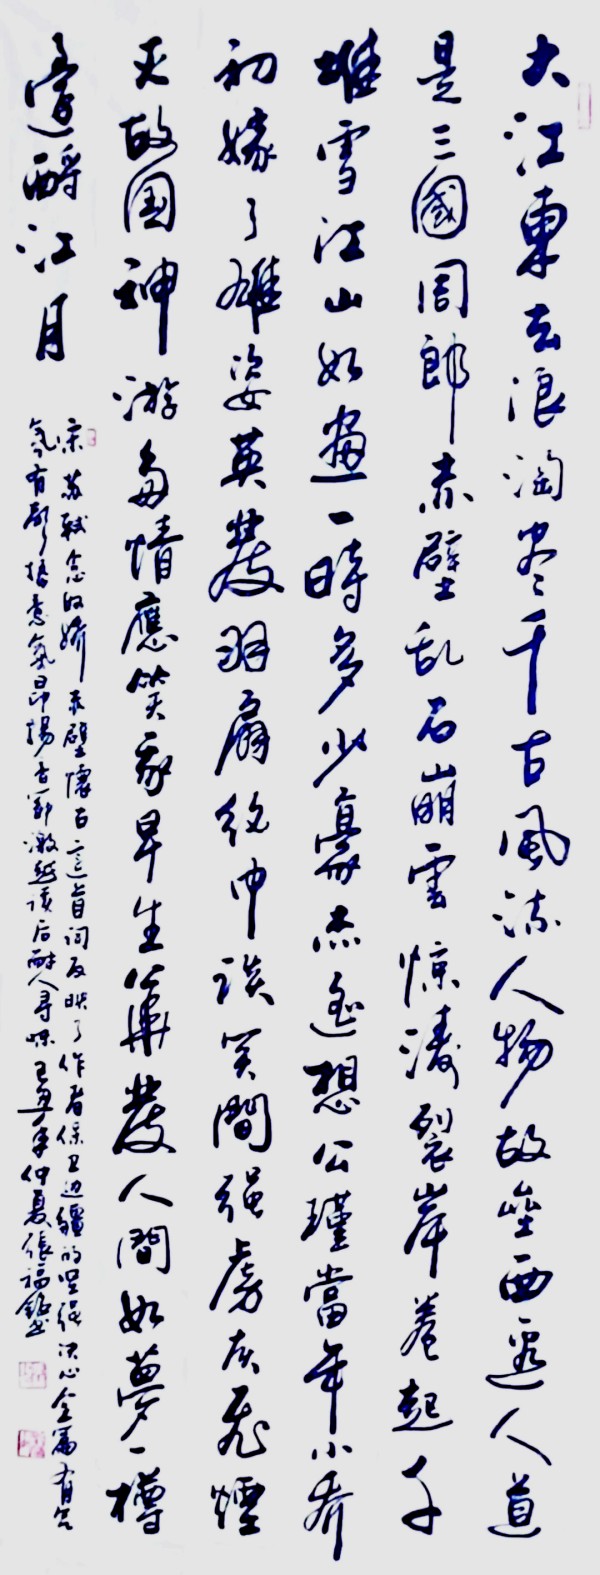 大江東去浪淘尽千古風流人物故壘西邊人道
是三國周郎赤壁乱石崩雲惊濤裂岸卷起千
堆雪江山如畫一時多少豪杰遙想公瑾當年小乔
初嫁了雄姿英發羽扇纶巾談笑間强虜灰飛煙
灭故国神游多情應笑我早生华發人間如夢一樽
還酹江月
宋苏軾念奴娇赤壁懷古這首词反映了作者保卫边疆的坚强决心全篇有
氣有意氣昂揚读后耐人尋味年仲夏張福